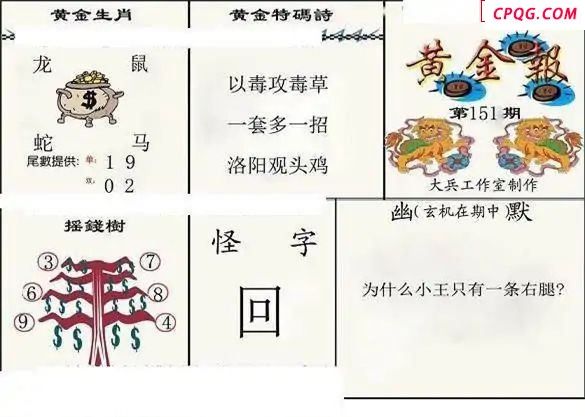 CPQG.COM
黄金生肖
龙 鼠
$
蛇 马
尾數提供：单：1 9
双：0 2
黄金特碼詩
以毒攻毒草
一套多一招
洛阳观头鸡
黄金報
第151期
大兵工作室制作
摇錢樹
③ ⑦
⑥ ⑧
⑨ ④
$ $ $ $ $ $
怪 字
回
幽（玄机在期中）默
为什么小王只有一条右腿?